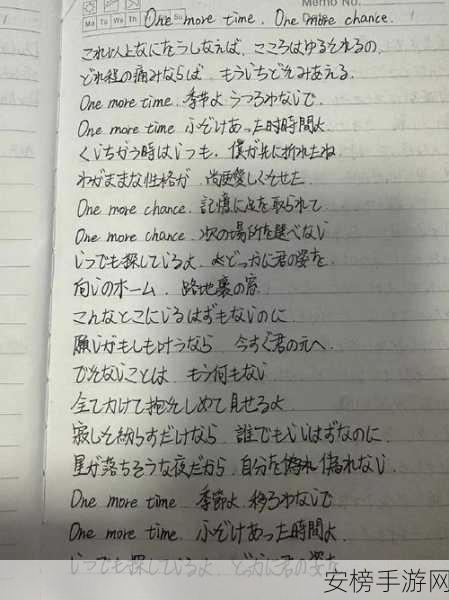 Memo No.
Mo Tu We Th Su
One more time. One more chance.
これ以上なにをうしなえば、こころはゆるされるの、
どれ程の痛みならば もういちどきみあえる.
One more time. 季節よ うつろわないで.
One more time ふざけあった時時間よ
くいちがう時はいつも、僕が先に折れたね
わがままな性格が 尚更愛しくさせた
One more chance. 記憶に足を取られて
One more chance. 次の場所を選べない
いつでも探しているよ どっかに君の姿を
向いのホーム 路地裏の窓
こんなとこにいるはずもないのに
願いがもしも叶うなら 今すぐ君の元へ
できないことは もう何もない
全てかけて抱きしめて見せるよ
寂しさ紛らすだけなら 誰でもいいはずなのに
星が落ちそうな夜だから 自分を偽れない
One more time 季節よ 移ろわないで
One more time. ふざけあった時間よ
いつでも探しているよ どっかに君の姿を
安榜手游网